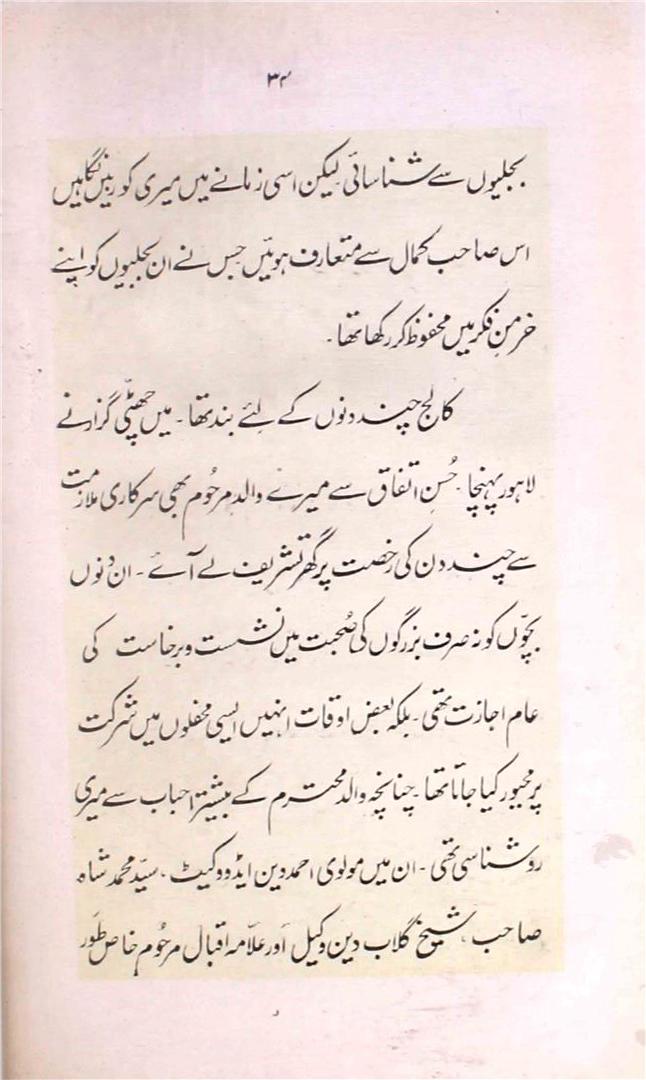 ۳۴
بجلیوں سے شناسائی لیکن اسی زمانے میں میری کور بیں نگاہیں
اس صاحب کمال سے متعارف ہوئیں جس نے ان بجلیوں کو اپنے
خرمنِ فکر میں محفوظ کر رکھا تھا۔
کالج چند دنوں کے لئے بند تھا۔ میں چھٹی گزارنے
لاہور پہنچا۔ حُسنِ اتفاق سے میرے والد مرحُوم بھی سرکاری ملازمت
سے چند دن کی رخصت پر گھر تشریف لے آئے۔ ان دنوں
بچّوں کو نہ صرف بزرگوں کی صُحبت میں نشست و برخاست کی
عام اجازت تھی۔ بلکہ بعض اوقات انہیں ایسی محفلوں میں شرکت
پر مجبور کیا جاتا تھا۔ چنانچہ والد محترم کے بیشتر احباب سے میری
روشناسی تھی۔ ان میں مولوی احمد دین ایڈووکیٹ، سیّد محمد شاہ
صاحب، شیخ گلاب دین وکیل اور علّامہ اقبال مرحُوم خاص طَور